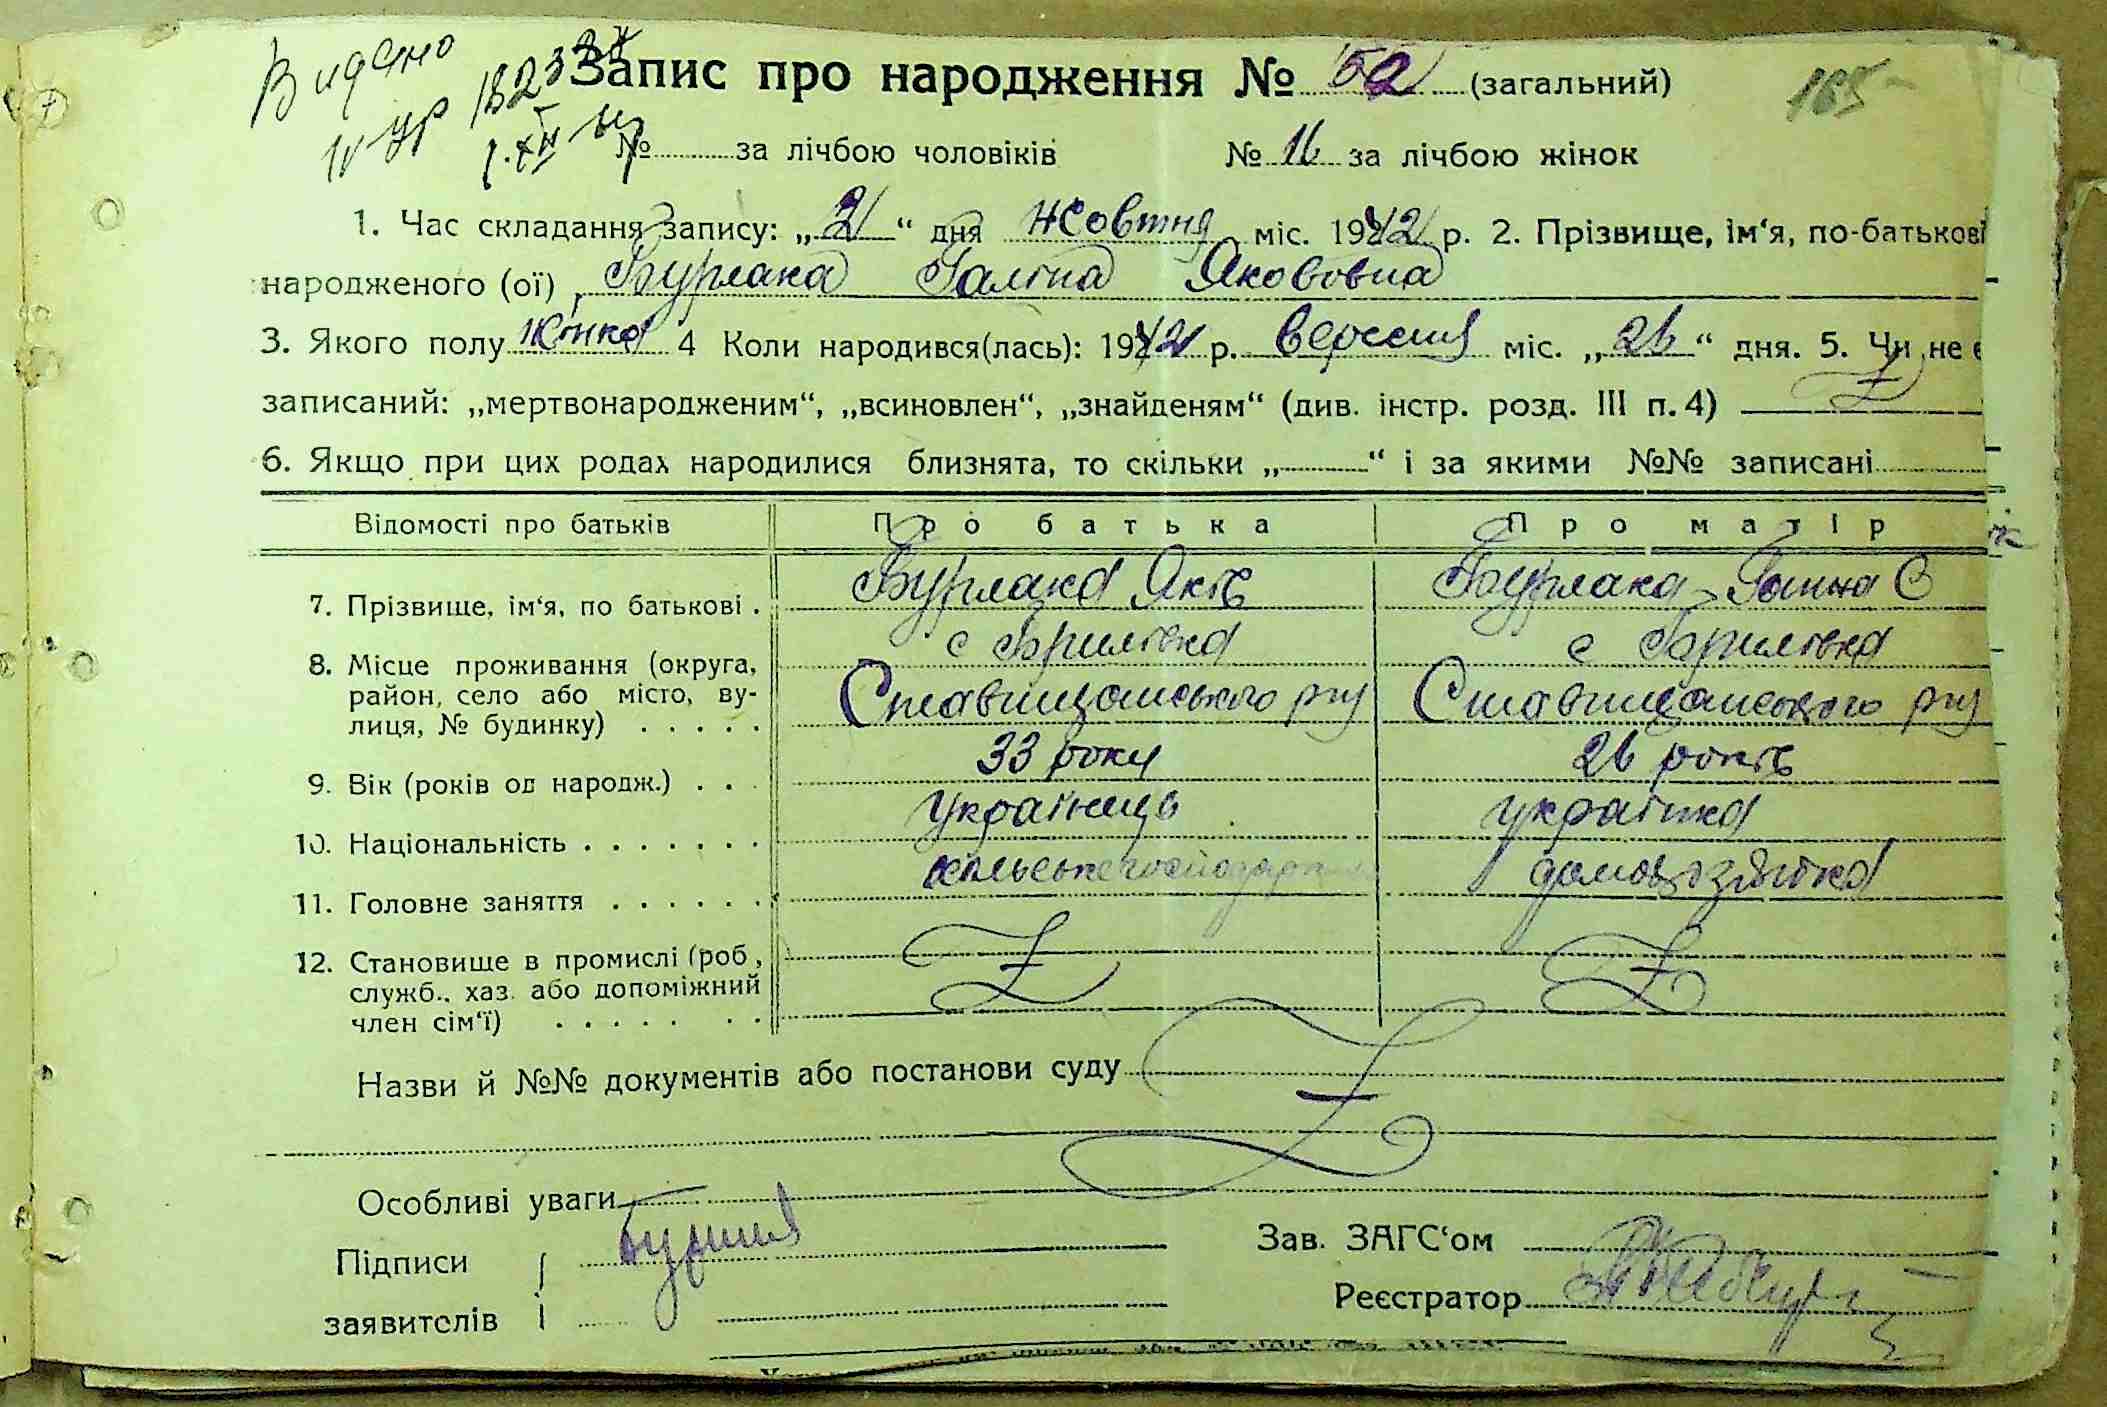 Видано
Запис про народження № 52 (загальний)
165
№ за лічбою чоловіків № 16 за лічбою жінок
1. Час складання запису: „2“ дня жовтня міс. 1942 р. 2. Прізвище, ім‘я, по-батькові
народженого (ої) Бурлака Галіна Яковівна
3. Якого полу жінка 4 Коли народився(лась): 1942 р. вересня міс. „26“ дня. 5. Чи не є
записаний: „мертвонародженим“, „всиновлен“, „знайденям“ (див. інстр. розд. III п. 4)
6. Якщо при цих родах народилися близнята, то скільки „—“ і за якими №№ записані
Відомості про батьків Про батька Про матір
7. Прізвище, ім‘я, по батькові . Бурлака Яків Бурлака Ганна С
8. Місце проживання (округа, с Брилівка с Брилівка
район, село або місто, ву-
лиця, № будинку) . . . . . Ставищанського р-ну Ставищанського р-ну
9. Вік (років од народж.) . . . 33 роки 26 років
10. Національність . . . . . . . українець українка
11. Головне заняття . . . . . . сільське господарство домохазяйка
12. Становище в промислі (роб.,
служб., хаз. або допоміжний
член сім‘ї) . . . . . . .
Назви й №№ документів або постанови суду
Особливі уваги
Підписи
Зав. ЗАГС‘ом
заявителів
Реєстратор